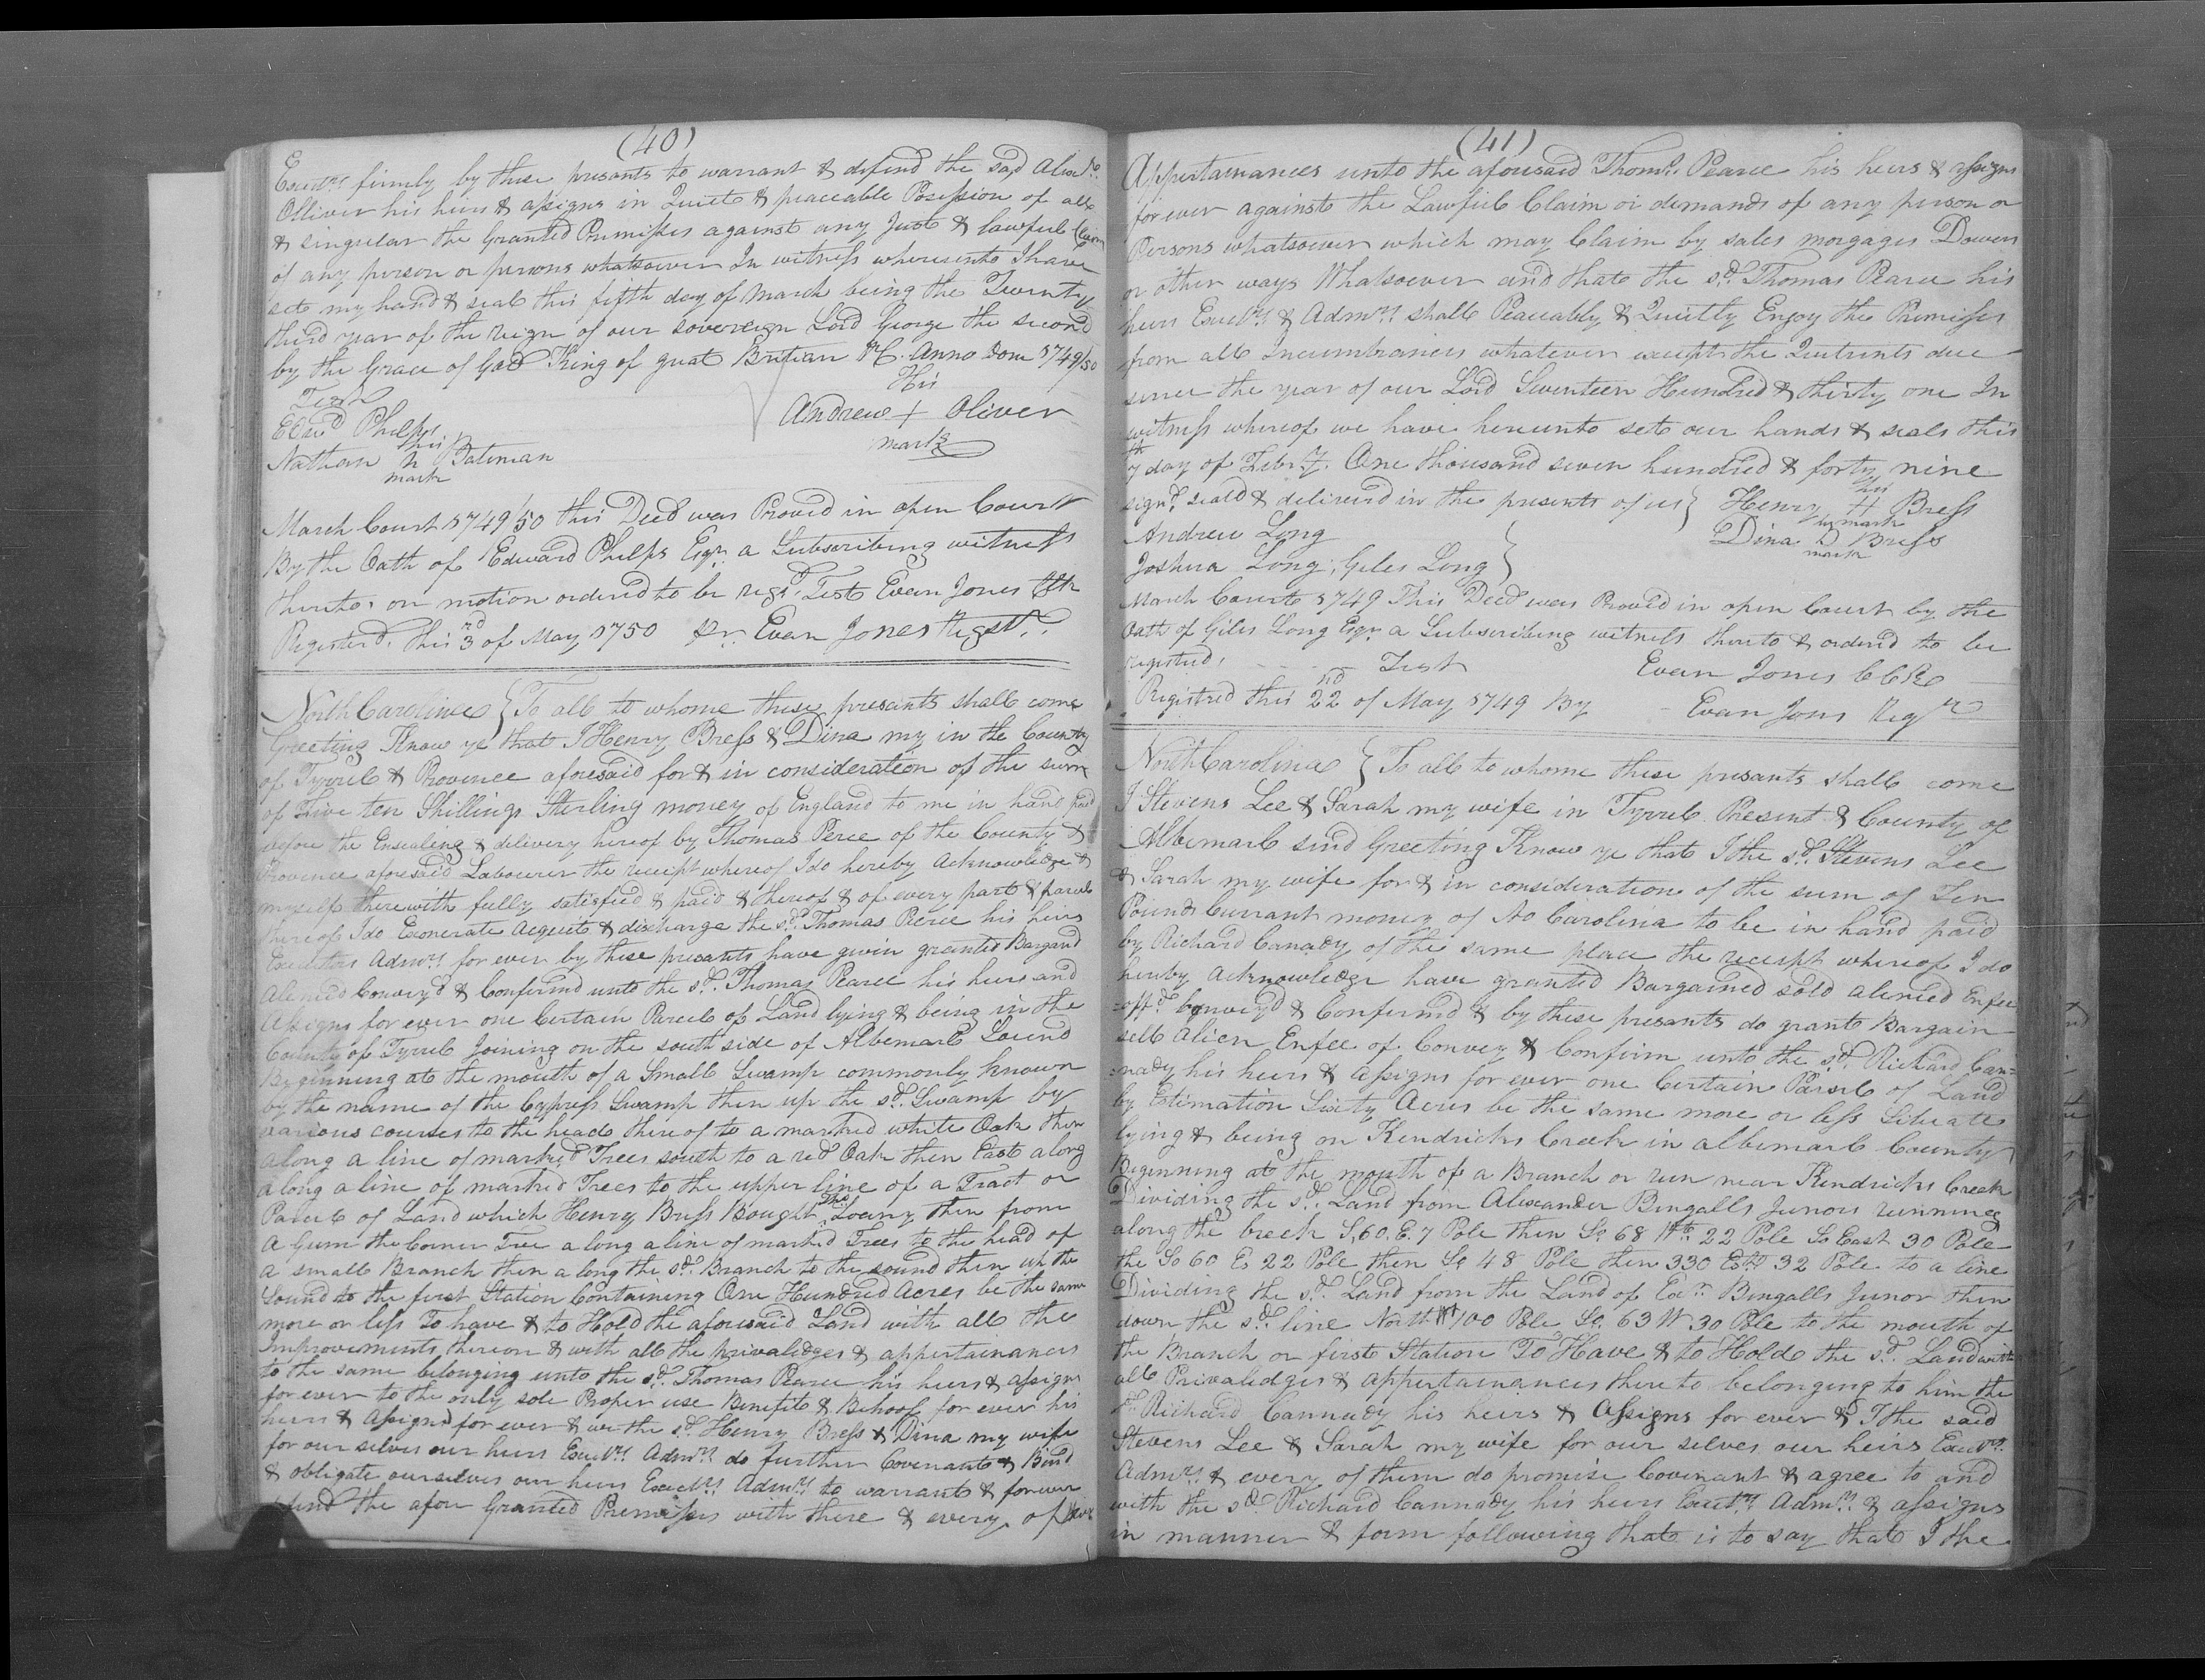 (40)
Execut.rs firmly by these presants to warrant & defend the sad Alexd.r
Olliver his heirs & assigns in Quiet & peaceable Possession of all
& singular the Granted Premisses against any Just & lawful Claim
of any person or persons whatsoever In witness whereunto I have
set my hand & seal this fifth day of March being the Twenty
third year of the reign of our sovereign Lord George the second
by the Grace of God King of great Britian &C. Anno Dom 1749/50
Test
His
Edwd Phelps
Andrew + Oliver
his
mark
Nathan N Bateman
mark
March Court 1749/50 this Deed was Proved in open Court
By the Oath of Edward Phelps Esqr. a Subscribing witness
thereto, on motion ordered to be regs.d Test Evan Jones Clk
Registerd. this 3rd of May 1750 pr. Evan Jones Regstr.
North Carolina } To all to whome these presants shall come
Greeting Know ye that I Henry Bress & Dina my in the County
of Tyrrel & Province aforesaid for & in consideration of the sum
of Five ten Shillings Sterling money of England to me in hand paid
before the Ensealing & delivery hereof by Thomas Perce of the County &
Province aforesaid Labourer the receipt whereof I do hereby Acknowledge &
myself therewith fully satisfied & paid & thereof & of every part & parcel
thereof I do Exonerate Acquite & discharge the sd. Thomas Perce his heirs
Executors Admrs for ever by these presants have given granted Bargand
Aliened Convey'd & Confirmd unto the sd. Thomas Pearce his heirs and
Assigns for ever one Certain Parcel of Land lying & being in the
County of Tyrrel Joining on the south side of Albemarl Sound
Beginning at the mouth of a Small Swamp commonly known
by the name of the Cypress Swamp then up the sd. Swamp by
various courses to the head thereof to a marked white Oak then
along a line of marked Trees south to a red Oak then East along
along a line of marked Trees to the upper line of a Tract or
Parcel of Land which Henry Bress Bought Thos. Loany then from
A Gum the Corner Tree along a line of marked Trees to the head of
a small Branch then along the sd. Branch to the sound then up the
Sound to the first Station Containing One Hundred Acres be the same
more or less To have & to Hold the aforesaid Land with all the
Improvements thereon & with all the privaledges & appertainances
to the same belonging unto the sd. Thomas Pearce his heirs & assigns
for ever to the only sole Proper use Benefit & Behoof for ever his
heirs & Assigns for ever & we the sd. Henry Bress & Dina my wife
for our selves our heirs Execrs. Admrs do further Covenant & Bind
& obligate ourselves our heirs Execrs. Admrs to warrant & forever
the afore Granted Premisses with there & every of their
(41)
Appertainances unto the aforesaid Thoms. Pearce his heirs & assigns
forever against the Lawful Claim or demands of any person or
Persons whatsoever which may Claim by sales morgages Dowers
or other ways Whatsoever and that the sd. Thomas Pearce his
heirs Execrs & Admrs shall Peaceably & Quietly Enjoy the Premisses
from all Incumbrances whatever except the Quitrents due
since the year of our Lord Seventeen Hundred & thirty one In
witness whereof we have hereunto set our hands & seals this
7th day of Febry. One thousand seven hundred & forty nine
signd. seald & deliverd in the presents of us } Henry his H Bress
mark
Andrew Long
Dina D Bress
mark
Joshua Long, Giles Long }
March Court 1749 This Deed was Proved in open Court by the
Oath of Giles Long Esqr a Subscribing witness thereto & orderd to be
registerd, Test Evan Jones CCR
Registred this 22nd of May 1749 By Evan Jons Regtr
North Carolina } To all to whome these presants shall come
I Stevens Lee & Sarah my wife in Tyrrel Present & County of
Albemarl send Greeting Know ye that I the sd. Stevens Lee
& Sarah my wife for & in consideration of the sum of Ten
Pounds Currant money of No Carolina to be in hand paid
by Richard Canady of the same place the receipt whereof I do
hereby Acknowledge have granted Bargained sold aliened Enfee
=offd. Convey'd & Confirmd & by these presants do grant Bargain
sell Alien Enfee of Convey & Confirm unto the sd. Richard Can=
=nady his heirs & Assigns for ever one Certain Parsel of Land
by Estimation Sixty Acres be the same more or less Situate
lying & being on Kendricks Creek in albemarl County
Beginning at the mouth of a Branch or run near Kendricks Creek
Dividing the sd. Land from Alexander Bingalls Junors running
along the Creek S.60.E.7 Pole then So 68 Wt 22 Pole So East 30 Pole
the So 60 E 22 Pole then So 48 Pole then 330 Est 32 Pole to a line
Dividing the sd. Land from the Land of Exr. Bingalls Junor then
down the sd. line North Wt 100 Pole So. 63 W 30 Pole to the mouth of
the Branch or first Station To Have & to Hold the sd. Land with
all Privaledges & appertainances thereto belonging to him the
sd. Richard Cannady his heirs & Assigns for ever & I the said
Stevens Lee & Sarah my wife for our selves our heirs Execrs.
Admrs. & every of them do promise Covenant & agree to and
with the sd. Richard Cannady his heirs Execrs Admrs. & assigns
in manner & form following that is to say that I the